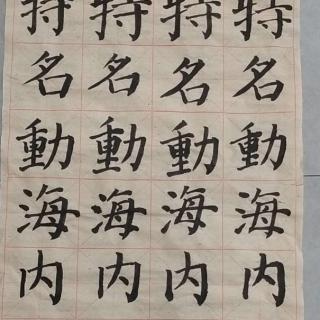 特特特特
名名名名
動動動動
海海海海
内内内内